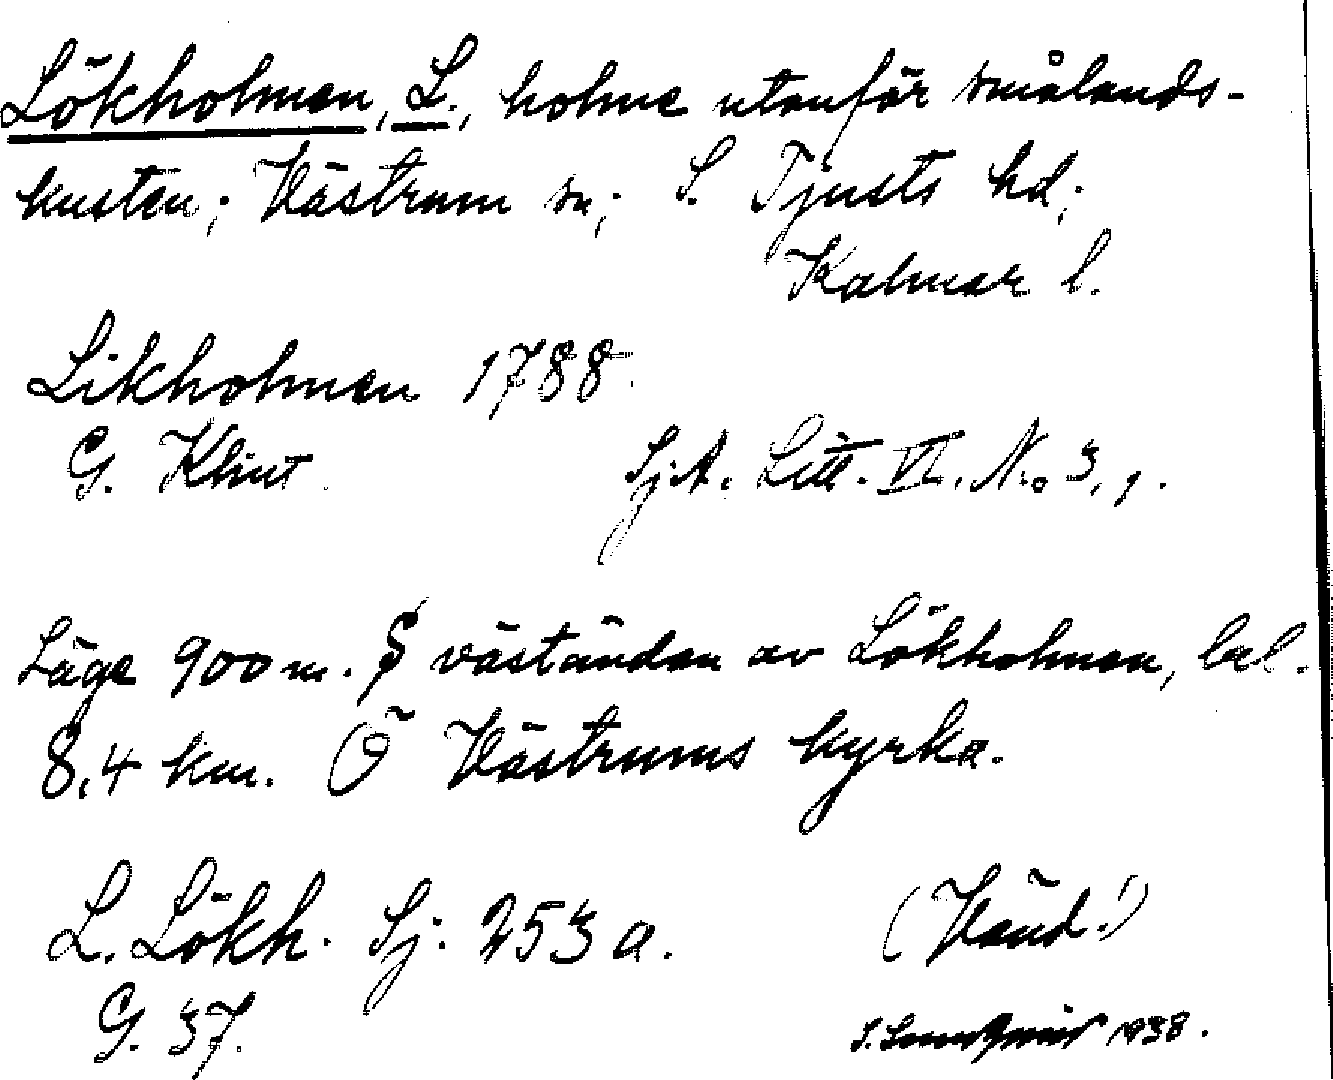 Lökholmen, L., holme utanför smålands-
kusten; Västrum sn; S. Tjusts hd;
Kalmar l.
Likholmen 1788.
G. Klint. Sj.A. Litt. VI. No 3, 1.
Läge 900 m. S väständan av Lökholmen, bel.
8,4 km. Ö Västrums kyrka.
L. Lökh. Sj. 253 a. (Vänd!)
G. 37. S. Lundqvist 1938.